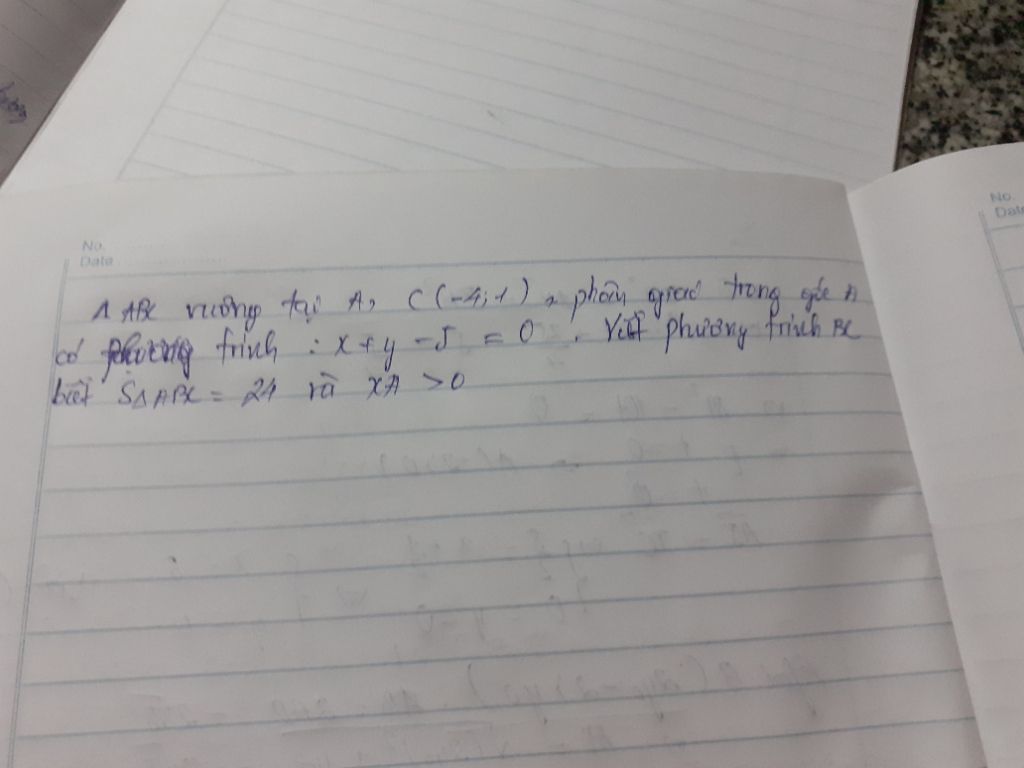 No.
Date
No.
Date
Δ ABC vuông tại A, C(-4;1), phân giác trong góc A
có phương trình : x + y - 5 = 0. Viết phương trình BC
biết SΔABC = 24 và xA > 0